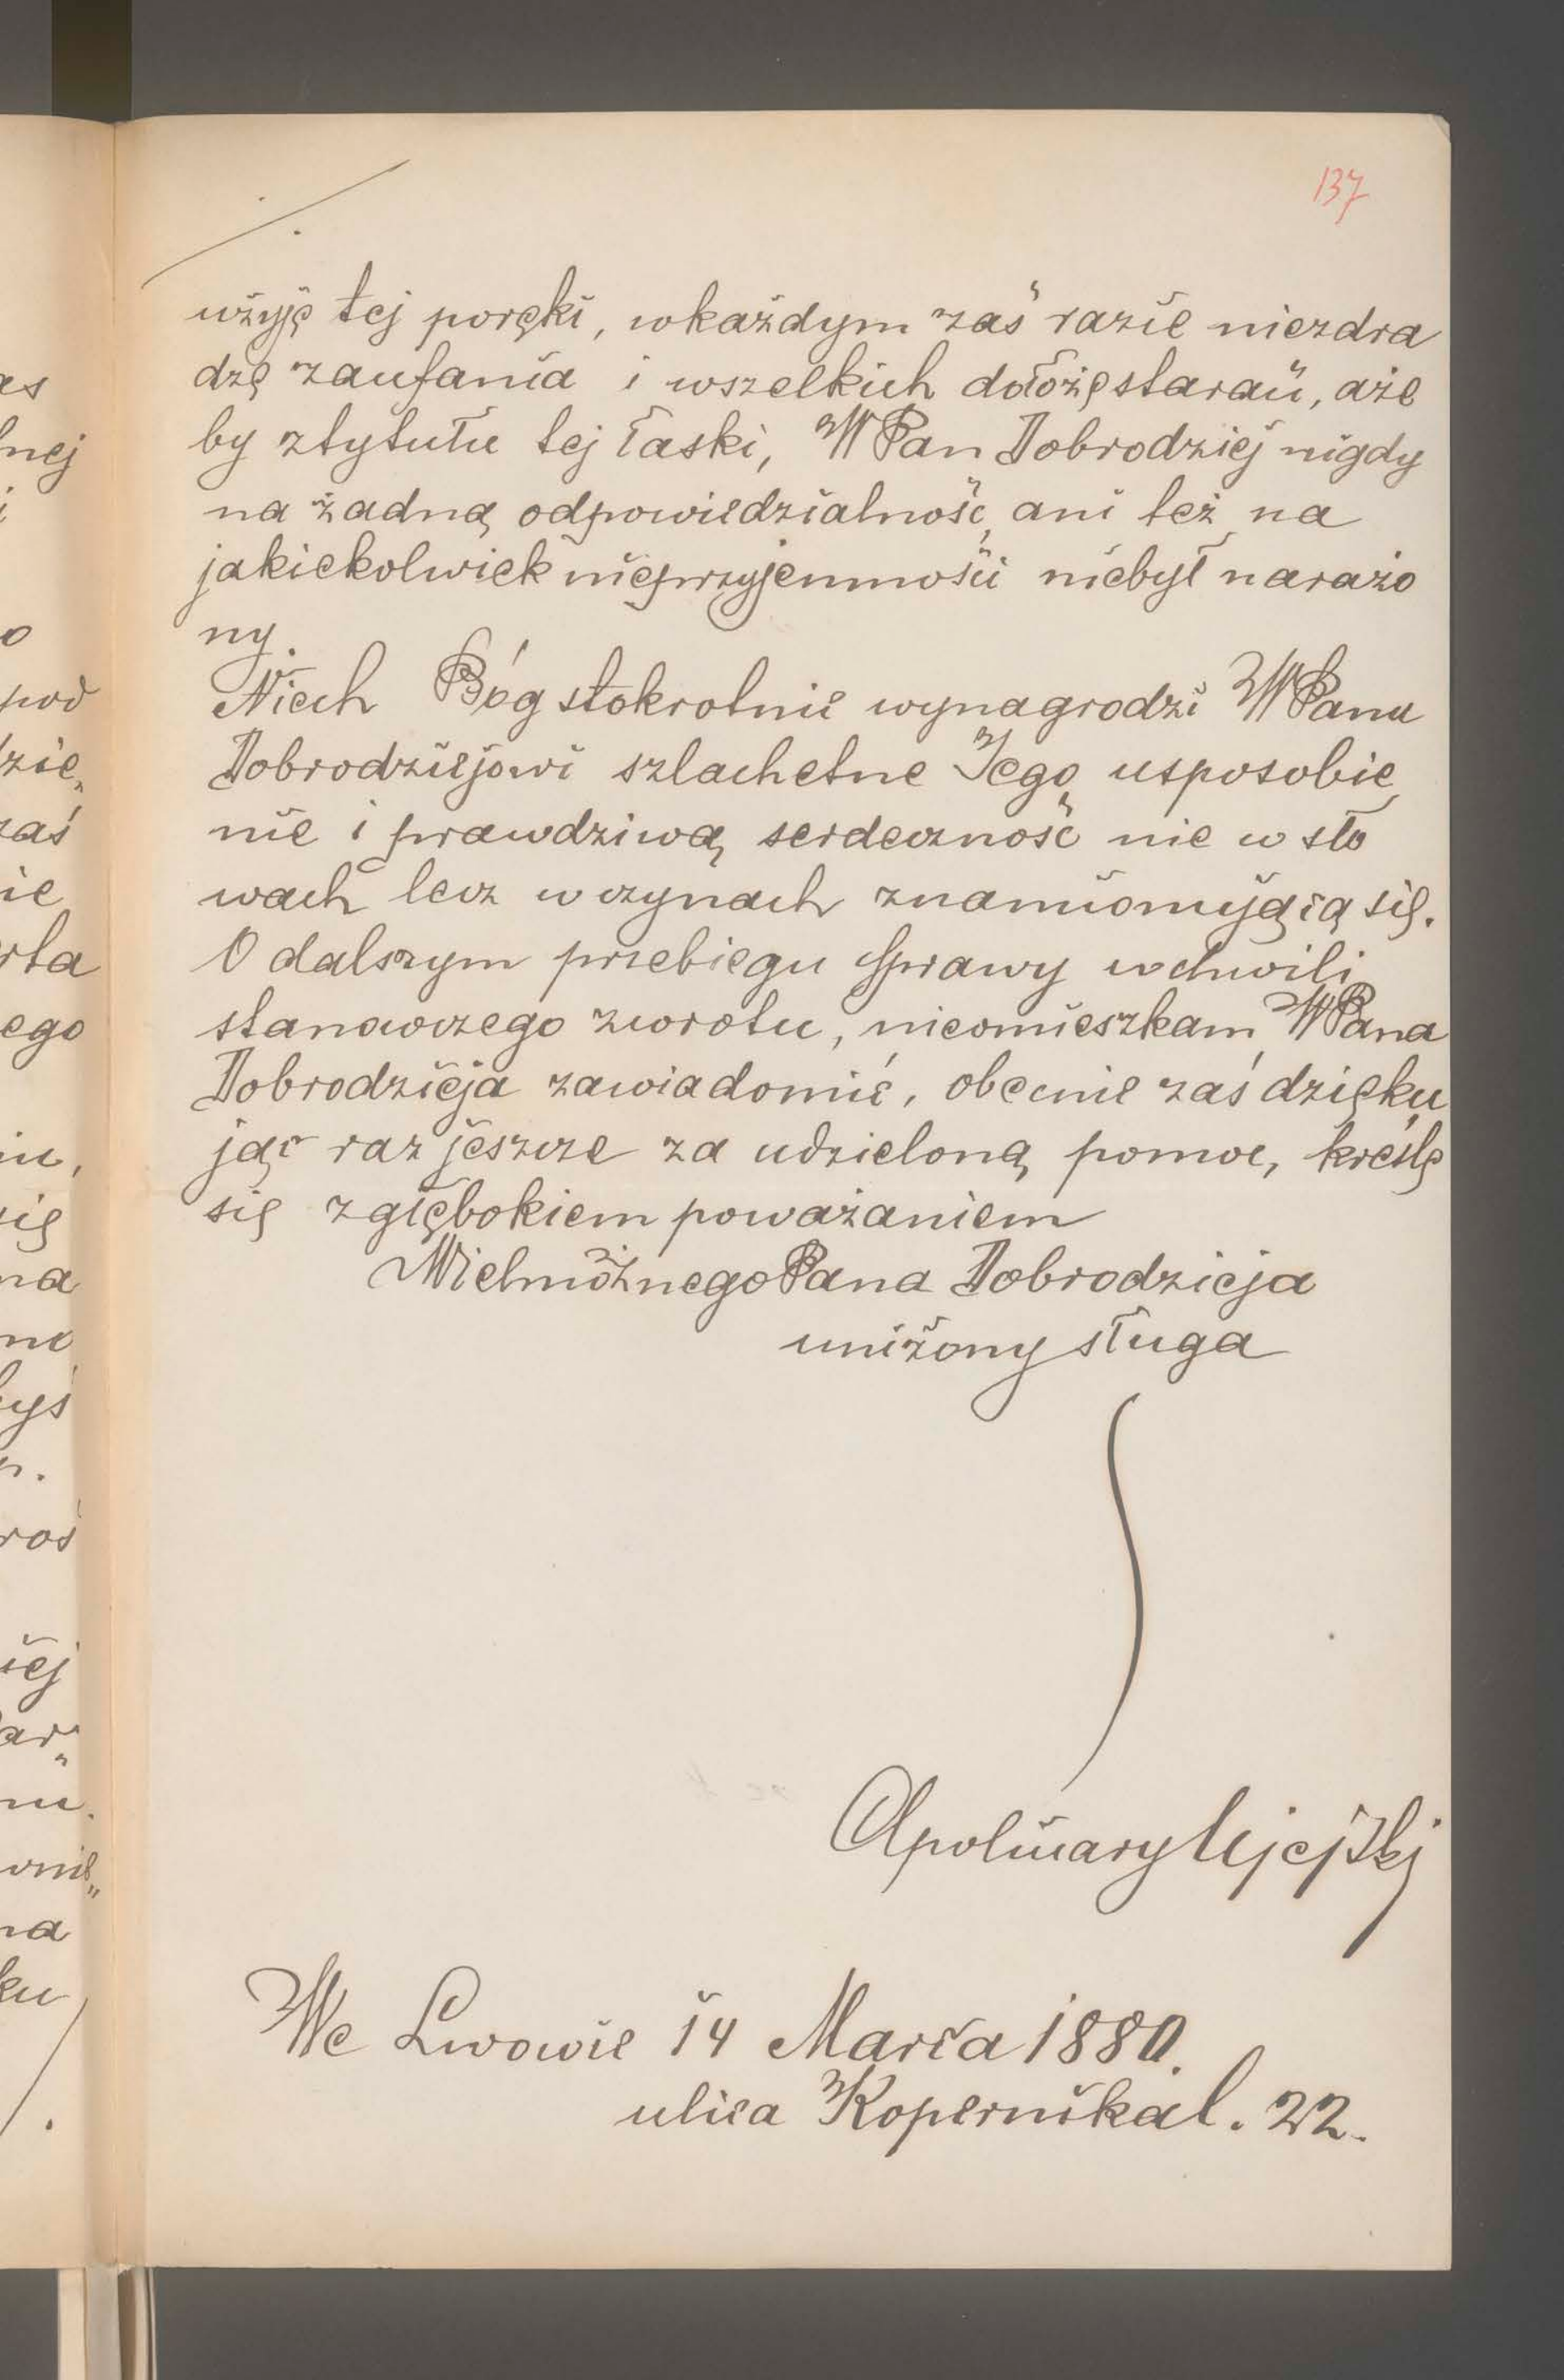 137
użyję tej poręki, wkażdym zaś razie niezdra
dzę zaufania i wszelkich dołożę starań, aże
by ztytułu tej łaski, WPan Dobrodziej nigdy
na żadną odpowiedzialność, ani też na
jakiekolwiek nieprzyjemności niebył narażo
ny.
Niech Bóg stokrotnie wynagrodzi WPanu
Dobrodziejowi szlachetne Jego usposobie
nie i prawdziwą serdeczność nie w sło
wach lecz w czynach znamionującą się.
O dalszym przebiegu sprawy w chwili
stanowczego zwrotu, nieomieszkam WPana
Dobrodzieja zawiadomić, obecnie zaś dzięku
jąc raz jeszcze za udzieloną pomoc, kreślę
się z głębokiem poważaniem
Wielmożnego Pana Dobrodzieja
uniżony sługa
Apolinary Ujejski
We Lwowie 14 Marca 1880.
ulica Kopernika l. 22.